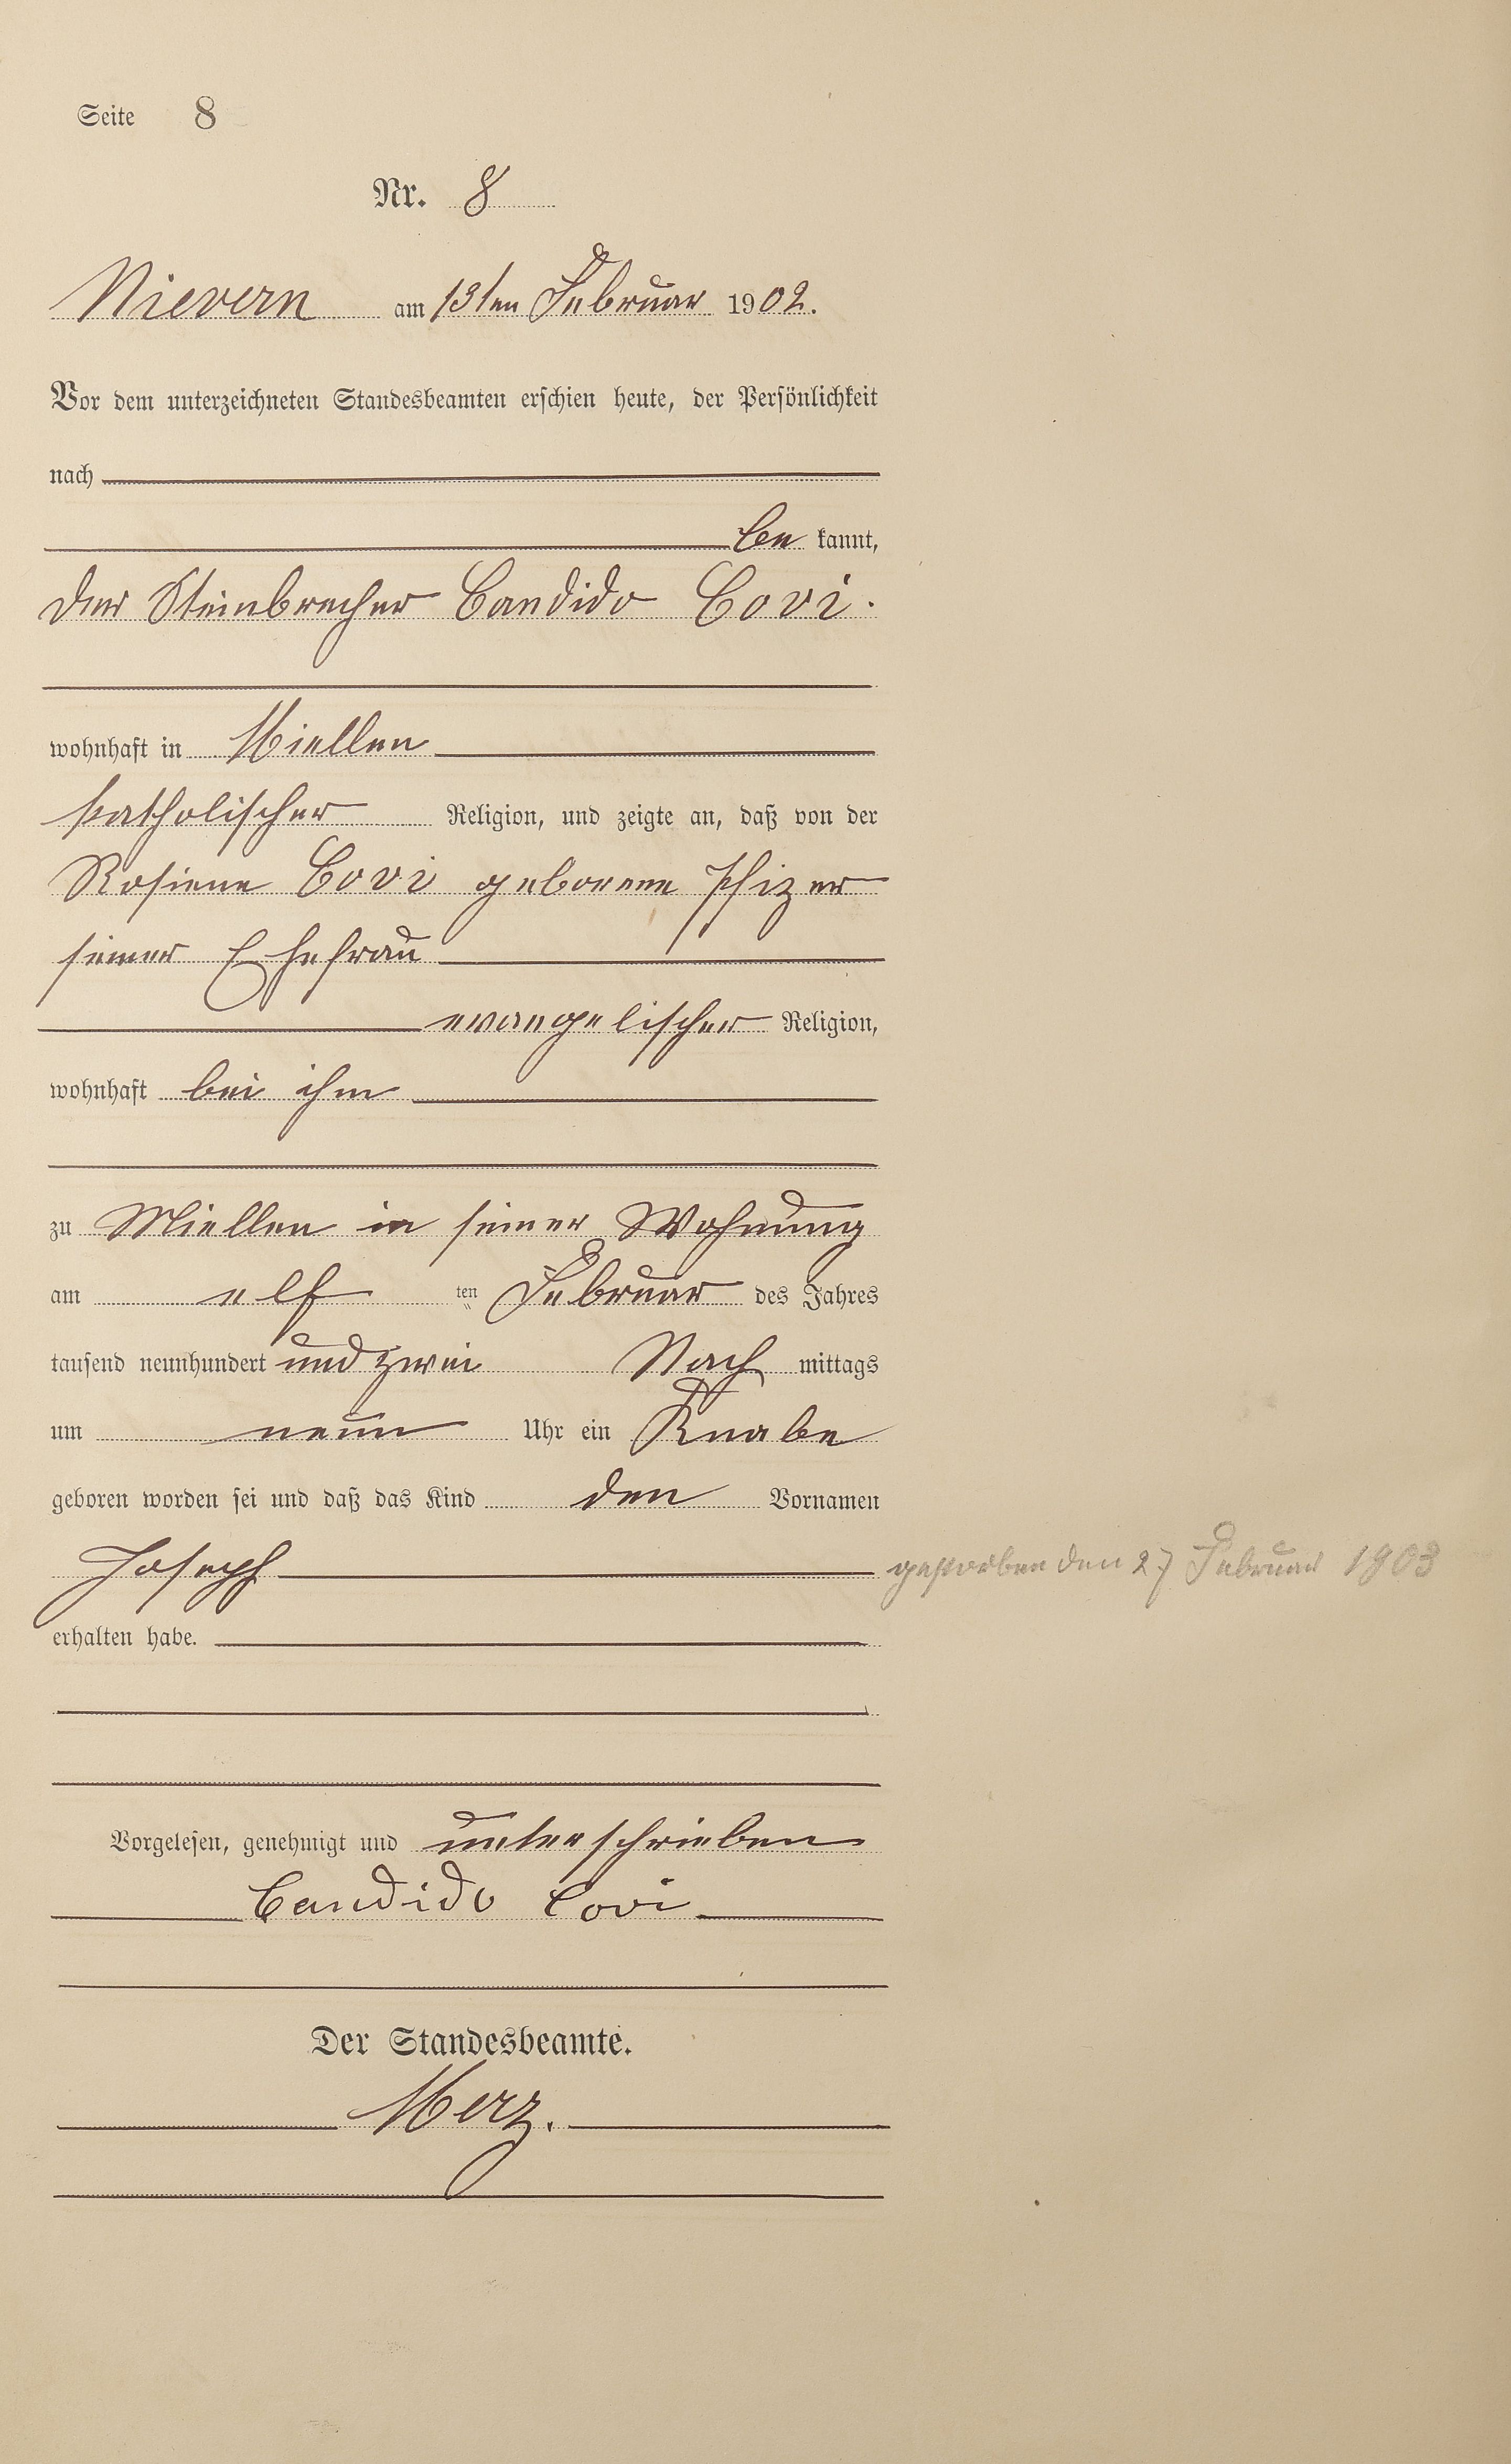 Seite 8
Nr. 8
Nievern am 13ten Februar 1902.
Vor dem unterzeichneten Standesbeamten erschien heute, der Persönlichkeit
nach
be kannt,
der Steinbrecher Candido Covi.
wohnhaft in Miellen
katholischer Religion, und zeigte an, daß von der
Rosiena Covi geborene Pfizer
seiner Ehefrau
evangelischer Religion,
wohnhaft bei ihm
zu Miellen in seiner Wohnung
am elf ten Februar des Jahres
tausend neunhundert und zwei Nach mittags
um neun Uhr ein Knabe
geboren worden sei und daß das Kind den Vornamen
Joseph
gestorben den 27 Februar 1903
erhalten habe.
Vorgelesen, genehmigt und unterschrieben
Candido Covi
Der Standesbeamte.
Merz.